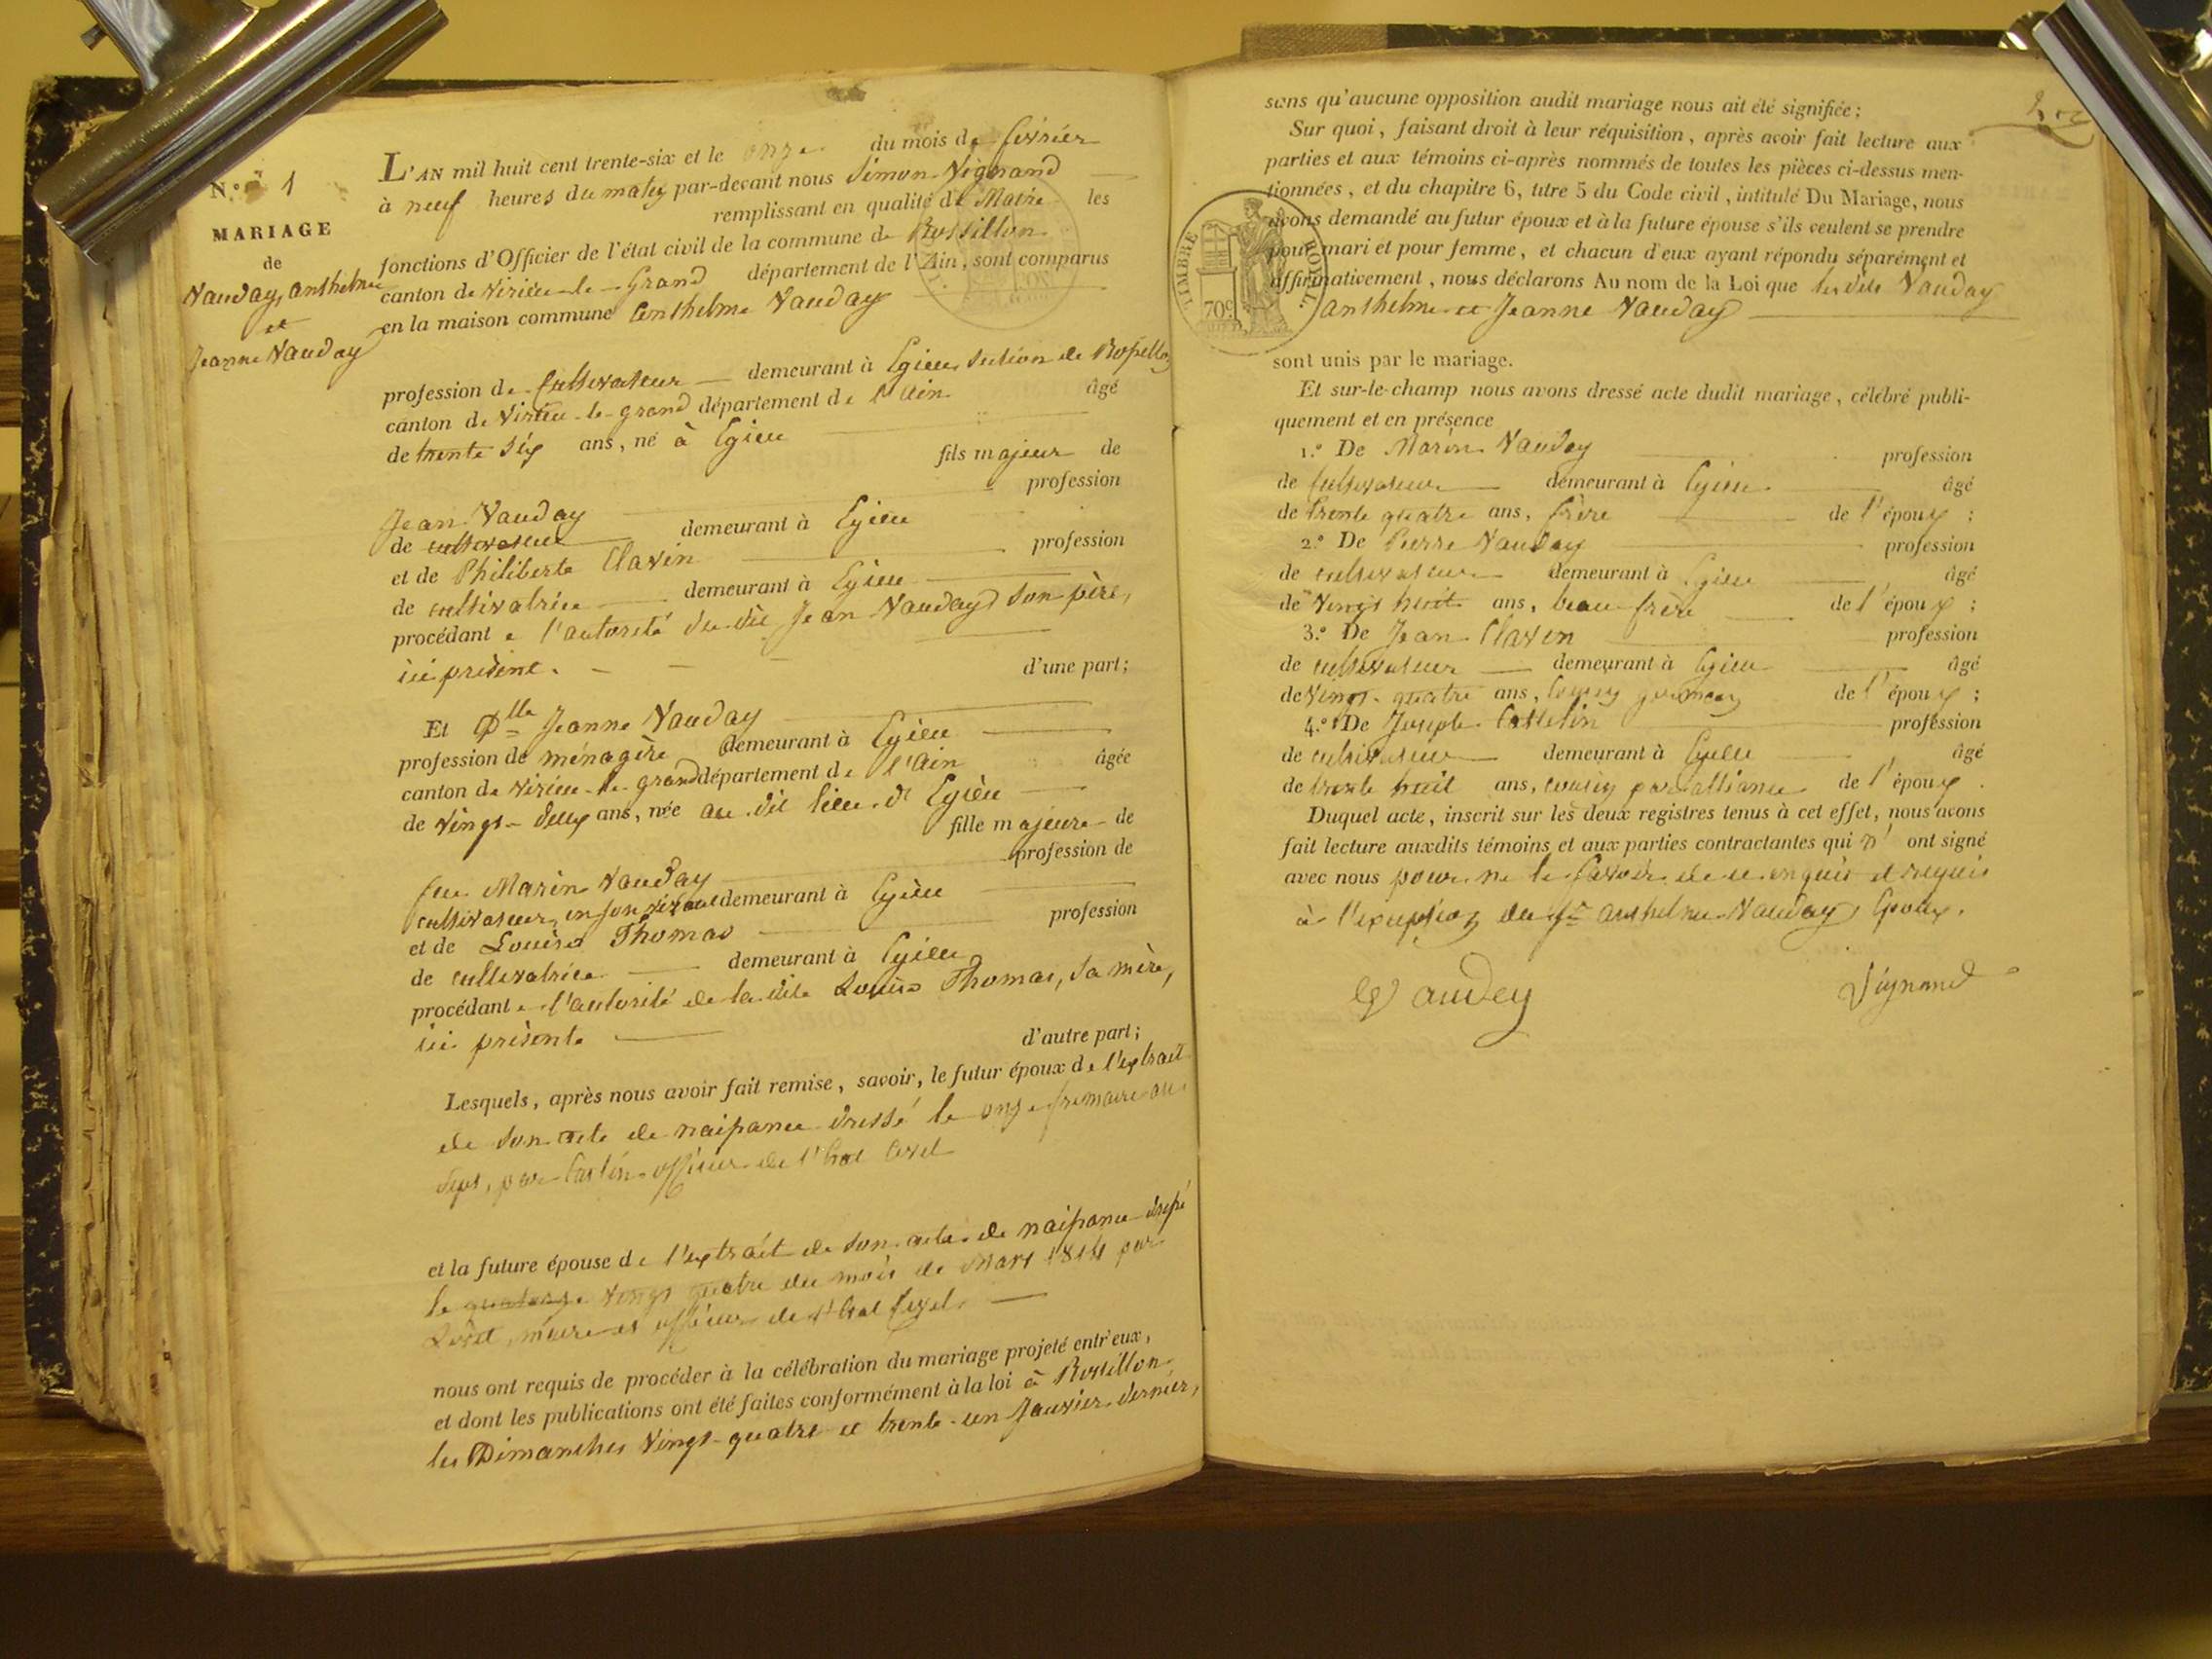 N.º 1
MARIAGE
de
Vauday, anthelme
et
Jeanne Vauday
L'AN mil huit cent trente-six et le onze du mois de février
à neuf heures du matin par-devant nous Simon Vignand
remplissant en qualité de Maire les
fonctions d'Officier de l'état civil de la commune de Rossillon
canton de Virieu-le-Grand département de l'Ain, sont comparus
en la maison commune Anthelme Vauday
profession de Cultivateur demeurant à Egieu section de Rossillon
canton de Virieu-le-grand département de l'Ain âgé
de trente six ans, né à Egieu
fils majeur de
Jean Vauday profession
de cultivateur demeurant à Egieu
et de Philiberte Claven profession
de cultivatrice demeurant à Egieu
procédant e l'autorité du dit Jean Vauday son père,
ici présent. d'une part;
Et Dlle Jeanne Vauday
profession de ménagère demeurant à Egieu
canton de Virieu-le-grand département de l'Ain âgée
de vingt-deux ans, née au dit lieu d'Egieu
fille majeure de
feu Marin Vauday profession de
cultivateur, en son vivant demeurant à Egieu
et de Louise Thomas profession
de cultivatrice demeurant à Egieu
procédant e l'autorité de la dite Louise Thomas, sa mère,
ici présente d'autre part;
Lesquels, après nous avoir fait remise, savoir, le futur époux de l'extrait
de son acte de naissance dressé le onze frimaire an
sept, par officier de l'état civil
et la future épouse de l'extrait de son acte de naissance dressé
le quatorze vingt quatre du mois de Mars 1814 par
maire et officier de l'état civil.
nous ont requis de procéder à la célébration du mariage projeté entr'eux,
et dont les publications ont été faites conformément à la loi à Rossillon
les Dimanches vingt-quatre et trente-un Janvier dernier,
sans qu'aucune opposition audit mariage nous ait été signifiée;
Sur quoi, faisant droit à leur réquisition, après avoir fait lecture aux
parties et aux témoins ci-après nommés de toutes les pièces ci-dessus men-
tionnées, et du chapitre 6, titre 5 du Code civil, intitulé Du Mariage, nous
avons demandé au futur époux et à la future épouse s'ils veulent se prendre
pour mari et pour femme, et chacun d'eux ayant répondu séparément et
affirmativement, nous déclarons Au nom de la Loi que les dits Vauday
anthelme et Jeanne Vauday
TIMBRE ROYAL
70c
sont unis par le mariage.
Et sur-le-champ nous avons dressé acte dudit mariage, célébré publi-
quement et en présence
1.º De Marin Vauday profession
de Cultivateur demeurant à Egieu âgé
de trente quatre ans, frère de l'époux;
2.º De Pierre Vauday profession
de cultivateur demeurant à Egieu âgé
de vingt huit ans, beau-frère de l'époux;
3.º De Jean Claven profession
de cultivateur demeurant à Egieu âgé
de vingt-quatre ans, cousin germain de l'époux;
4.º De Joseph profession
de cultivateur demeurant à Egieu âgé
de trente huit ans, cousin par alliance de l'époux.
Duquel acte, inscrit sur les deux registres tenus à cet effet, nous avons
fait lecture auxdits témoins et aux parties contractantes qui n' ont signé
avec nous pour ne le savoir de ce enquis et requis
à l'exception du Sr anthelme Vauday, époux.
Vaudey
Vignand